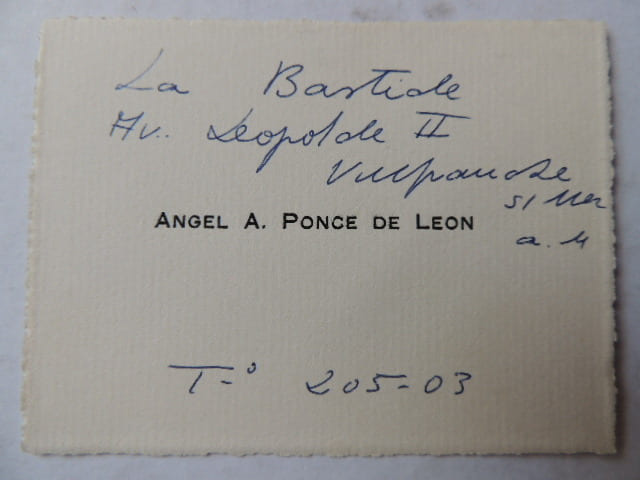 La Bastide
Av. Leopolde II
Villefranche
s/ Mer
a. M
ANGEL A. PONCE DE LEON
T-° 205-03